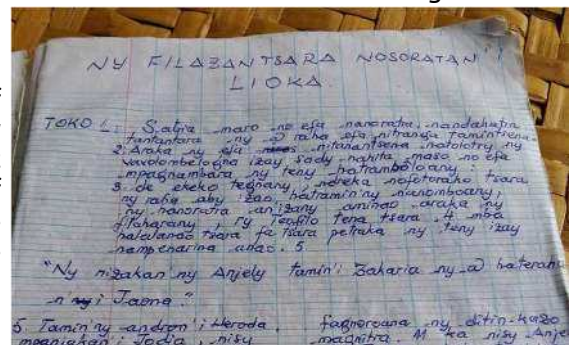 NY FILAZANTSARA NOSORATAN'I
LIOKA
TOKO 1: Satria maro no efa nanoratra, nandahatra
tantantara ny @ raha efa nitranga tamintsena
2. Araka ny aja nitanantsena natolotry ny
vavolombelogna izay sady nahita maso no efa
mpagnambara ny teny hatrambaloany:
3. de ekeko tegnany, ndreka nofotorako tsara
ny raha aby izao, hatramin'ny nanomboany,
ny hanoratra anizany aminao araka ny
filaharany, ry Teofilo tena tsara. 4. mba
hahalanao tsara fa tsara petraka ny teny izay
nampenarina anao. 5
"Ny nizakan'ny Anjely tamin'i Zakaria ny @ haterana
n'i Jaona"
5. Tamin'ny andron'i Heroda,
mpanjakan'i Jodia, nisy
fagnoroana ny ditin-kazo
magnitra. M ka nisy Anje